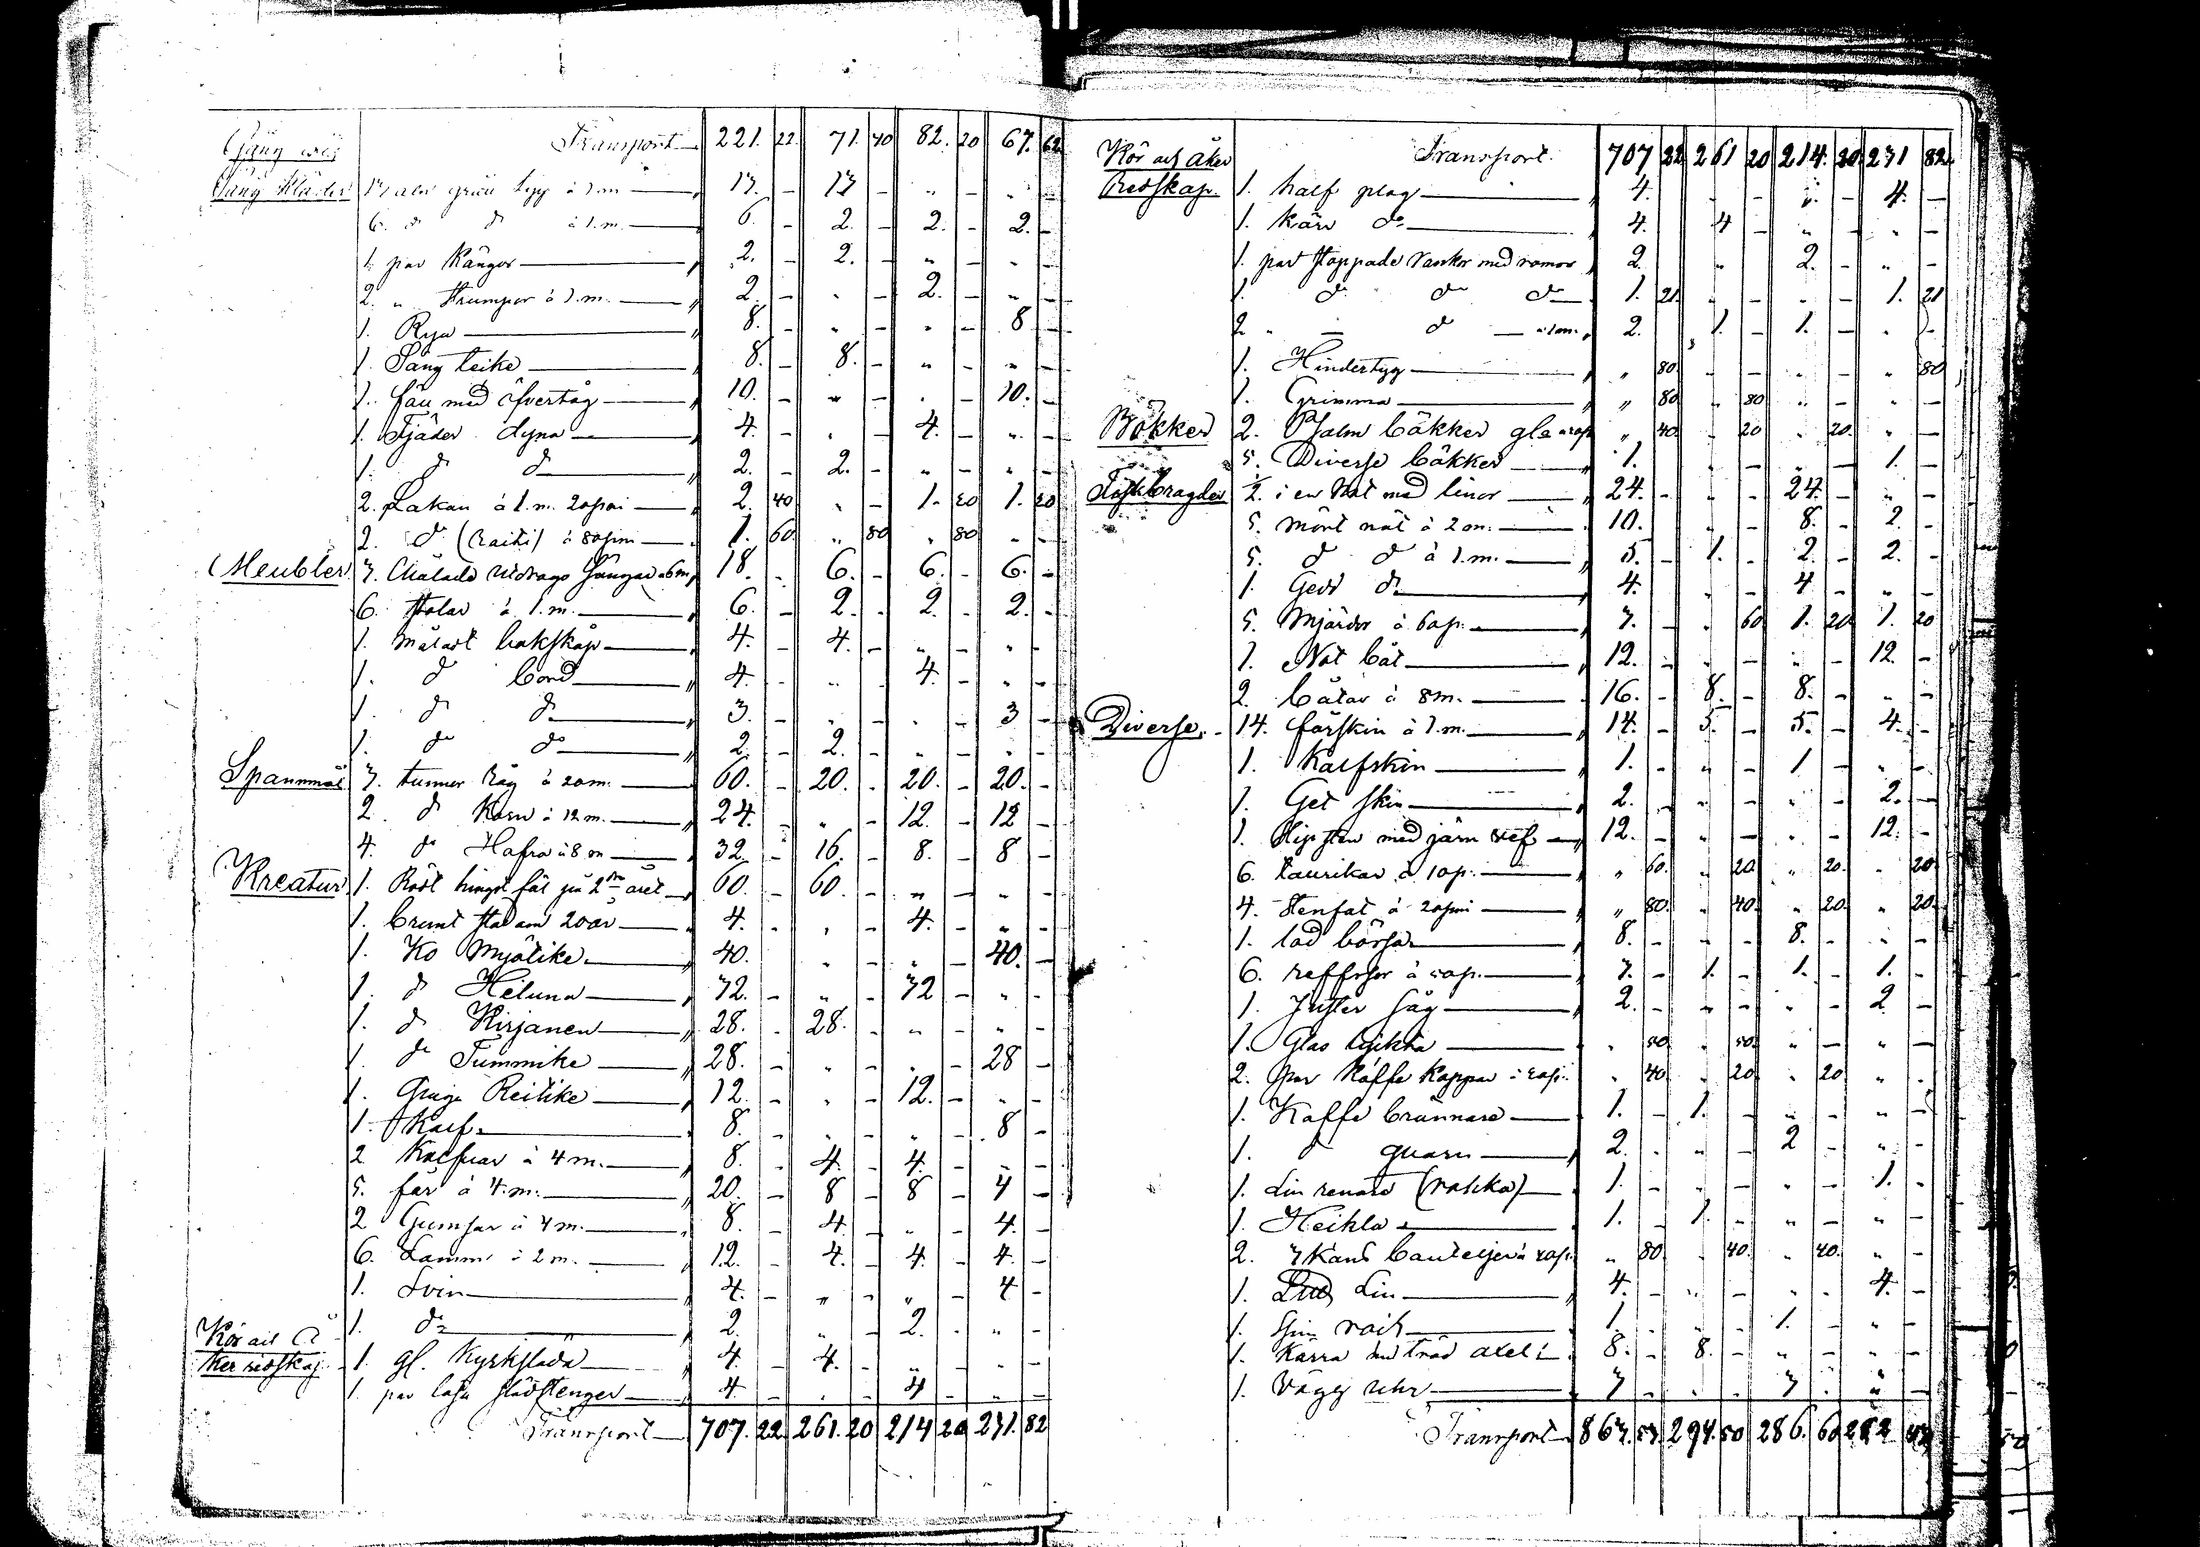 Gång och Transport 221. 22. 71. 40 82. 20 67. 62
Säng Kläder 13 aln grått tyg à 1 m 13. - 13 - „ - „ -
6 d d à 1. m. 6. - 2. - 2. - 2. -
1. par Kängor 2. - 2. - „ - „ -
2. „ Strumpor à 1. m. 2. - „ - 2. - „ -
1. Rya 8. - „ - „ - 8 -
1. Säng teike 8. - 8. - „ - „ -
1. fäll med öfvertåg 10. - „ - „ - 10. -
1. Fjäder dyna 4. - „ - 4. - „ -
1. d d 2. - 2. - „ - „ -
2. Lakan à 1. m. 20 pni 2. 40 „ - 1. 20 1. 20
2. d (raiti) à 80 pni 1. 60. „ 80 „ 80 „ -
Meubler 3. Målade utdrags sängar à 6 m 18. - 6. - 6. - 6. -
6. stolar à 1. m. 6. - 2. - 2. - 2. -
1. målat bakskåp 4. - 4. - „ - „ -
1. d bord 4. - „ - 4. - „ -
1. d d 3. - „ - „ - 3 -
1. do do 2. - 2. - „ - „ -
Spanmål 3. tunnor Råg à 20 m. 60. - 20. - 20. - 20. -
2. d Korn à 12 m. 24. - „ - 12. - 12 -
4. do Hafra à 8 m 32. - 16. - 8. - 8 -
Kreatur 1. Rödt hingst föl på 2dra året 60. - 60. - „ - „ -
1. brunt sto om 20 år 4. - „ - 4. - „ -
1. Ko Mjölike 40. „ - „ - 40. -
1. d Heluna 32. - „ - 32 - „ -
1. d Kirjanen 28. - 28. - „ - „ -
1. do Tummike 28. - „ - „ - 28 -
1. Qviga Reitike 12. - „ - 12. - „ -
1. Kalf 8. - „ - „ - 8 -
2 Kalfvar à 4 m. 8. - 4. - 4. - „ -
5. får à 4. m. 20. - 8 - 8 - 4 -
2 Gumsar à 4 m. 8. - 4. - „ - 4. -
6. Lamm à 2 m. 12. - 4. - 4. - 4. -
1. Svin 4. - „ - „ - 4 -
Kör och Å 1. do 2. - „ - 2. - „ -
ker redskap 1. gl. Kyrksläda 4. - 4. - „ - „ -
1. par lasu slädstenger 4. - „ - 4 - „ -
Transport 707. 22. 261. 20 214 20 231. 82
Kör och åker Transport. 707 22 261 20 214. 20. 231 82.
Redskap. 1. half plog 4. „ - „ - 4. -
1. kärr do 4. 4 - „ - „ -
1. par stoppade rankor med remor 2. „ 2. - „ -
1. d do do 1. 21 „ - „ - 1. 21
2 „ - d - à 1 m. 2. 1. - 1. - „ -
1. Hindertyg „ 80. „ - „ - „ 80
1. Grimma „ 80 „ 80 „ - „ -
Bökker 2. Psalm bökker gla à 20 p. „ 40. „ 20 „ 20. „ -
5. Diverse bökker 1. „ - „ - 1. -
Fiskbragder ½. i en Not med linor 24. - „ - 24. - „ -
5. mört nät à 2 m. 10. „ - 8. - 2. -
5. d d à 1. m. 5. - 1. - 2. - 2. -
1. Gedd do 4. - „ - 4 - „ -
5. Mjärdor à 60 p. 3. - „ 60 1. 20 1. 20
1. Not båt 12. - „ - „ - 12. -
2. båtar à 8 m. 16. - 8. - 8. - „ -
Diverse. 14. fårskin à 1. m. 14. - 5. - 5. - 4. -
1. Kalfskin 1. - „ - 1 - „ -
1. Get skin 2. - „ - „ - 2. -
1. Slipsten med järn vef 12. - „ - „ - 12. -
6. taurikar à 10 p. „ 60. „ 20 „ 20. „ 20.
4. stenfat à 20 pni „ 80. „ 40. „ 20. „ 20.
1. lod bössa 8. - „ - 8. - „ -
6. reffsor à 50 p. 3. - 1. - 1. - 1. -
1. Juster såg 2. - „ - „ - 2 -
1. Glas lyckta „ 50 „ 50. „ - „ -
2. par Kaffe Koppar à 20 p. „ 40. „ 20. „ 20 „ -
1. Kaffe brännare 1. - 1. - „ - „ -
1. d quarn 2. - „ - 2 - „ -
1. Lin renare (rokka) 1. - „ - „ - 1. -
1. Heikla 1. - 1. - „ - „ -
2. 3 kans bauteljer à 40 p. „ 80 „ 40. „ 40. „ -
1. Lin 4. - „ - „ - 4. -
1. Spin rock 1. - „ - 1. - „ -
1. Kärra med träd axel 8. - 8. - „ - „ -
1. Vägg uhr 3 - „ - 3 - „ -
Transport 863. 53. 294. 50 286. 60 282 43